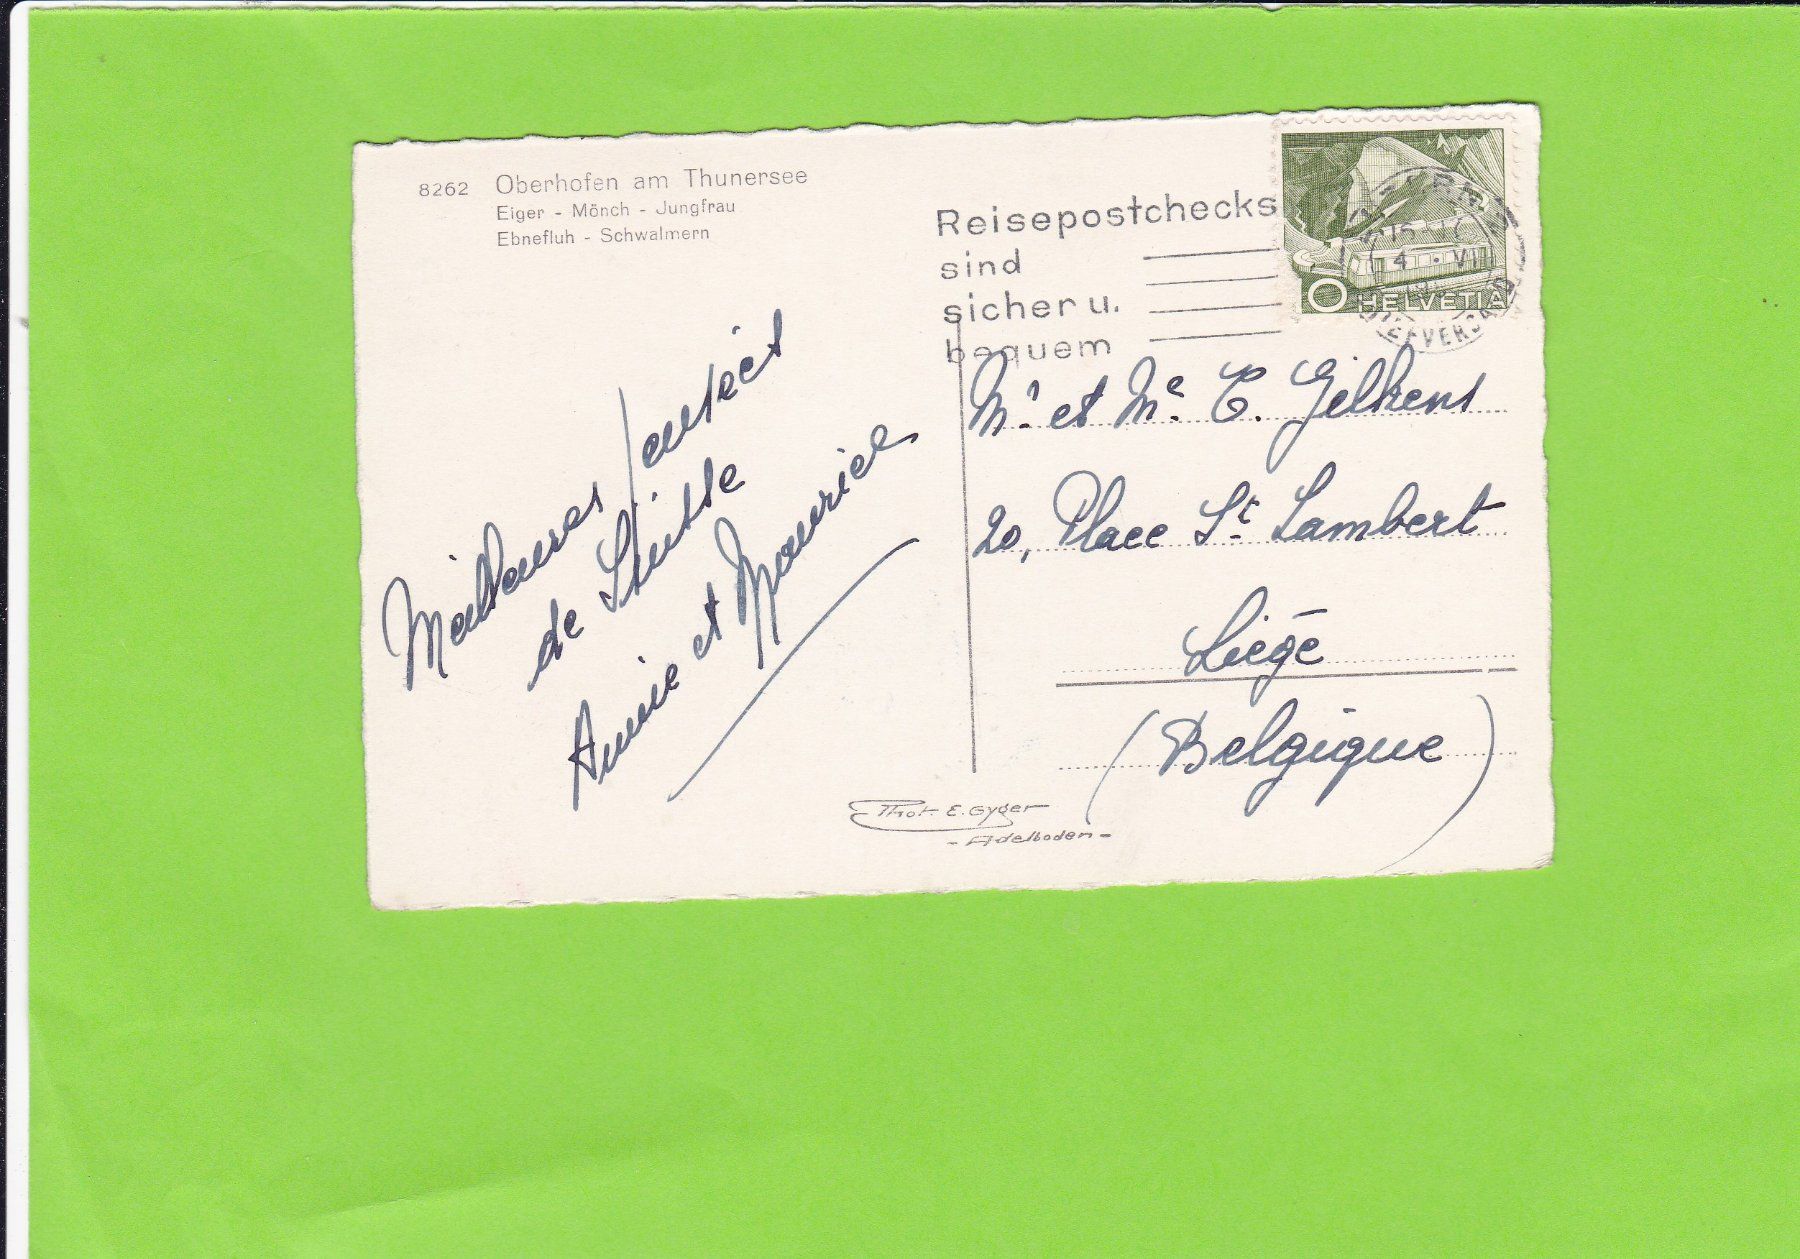 8262 Oberhofen am Thunersee
Eiger - Mönch - Jungfrau
Ebnefluh - Schwalmern
Reisepostchecks
sind
sicher u.
bequem
HELVETIA
Meilleures
de Suisse
Annie et Maurice
Mr et Me C. Gilkens
20, Place St Lambert
Liège
(Belgique)
Phot E. Gyger
- Adelboden -